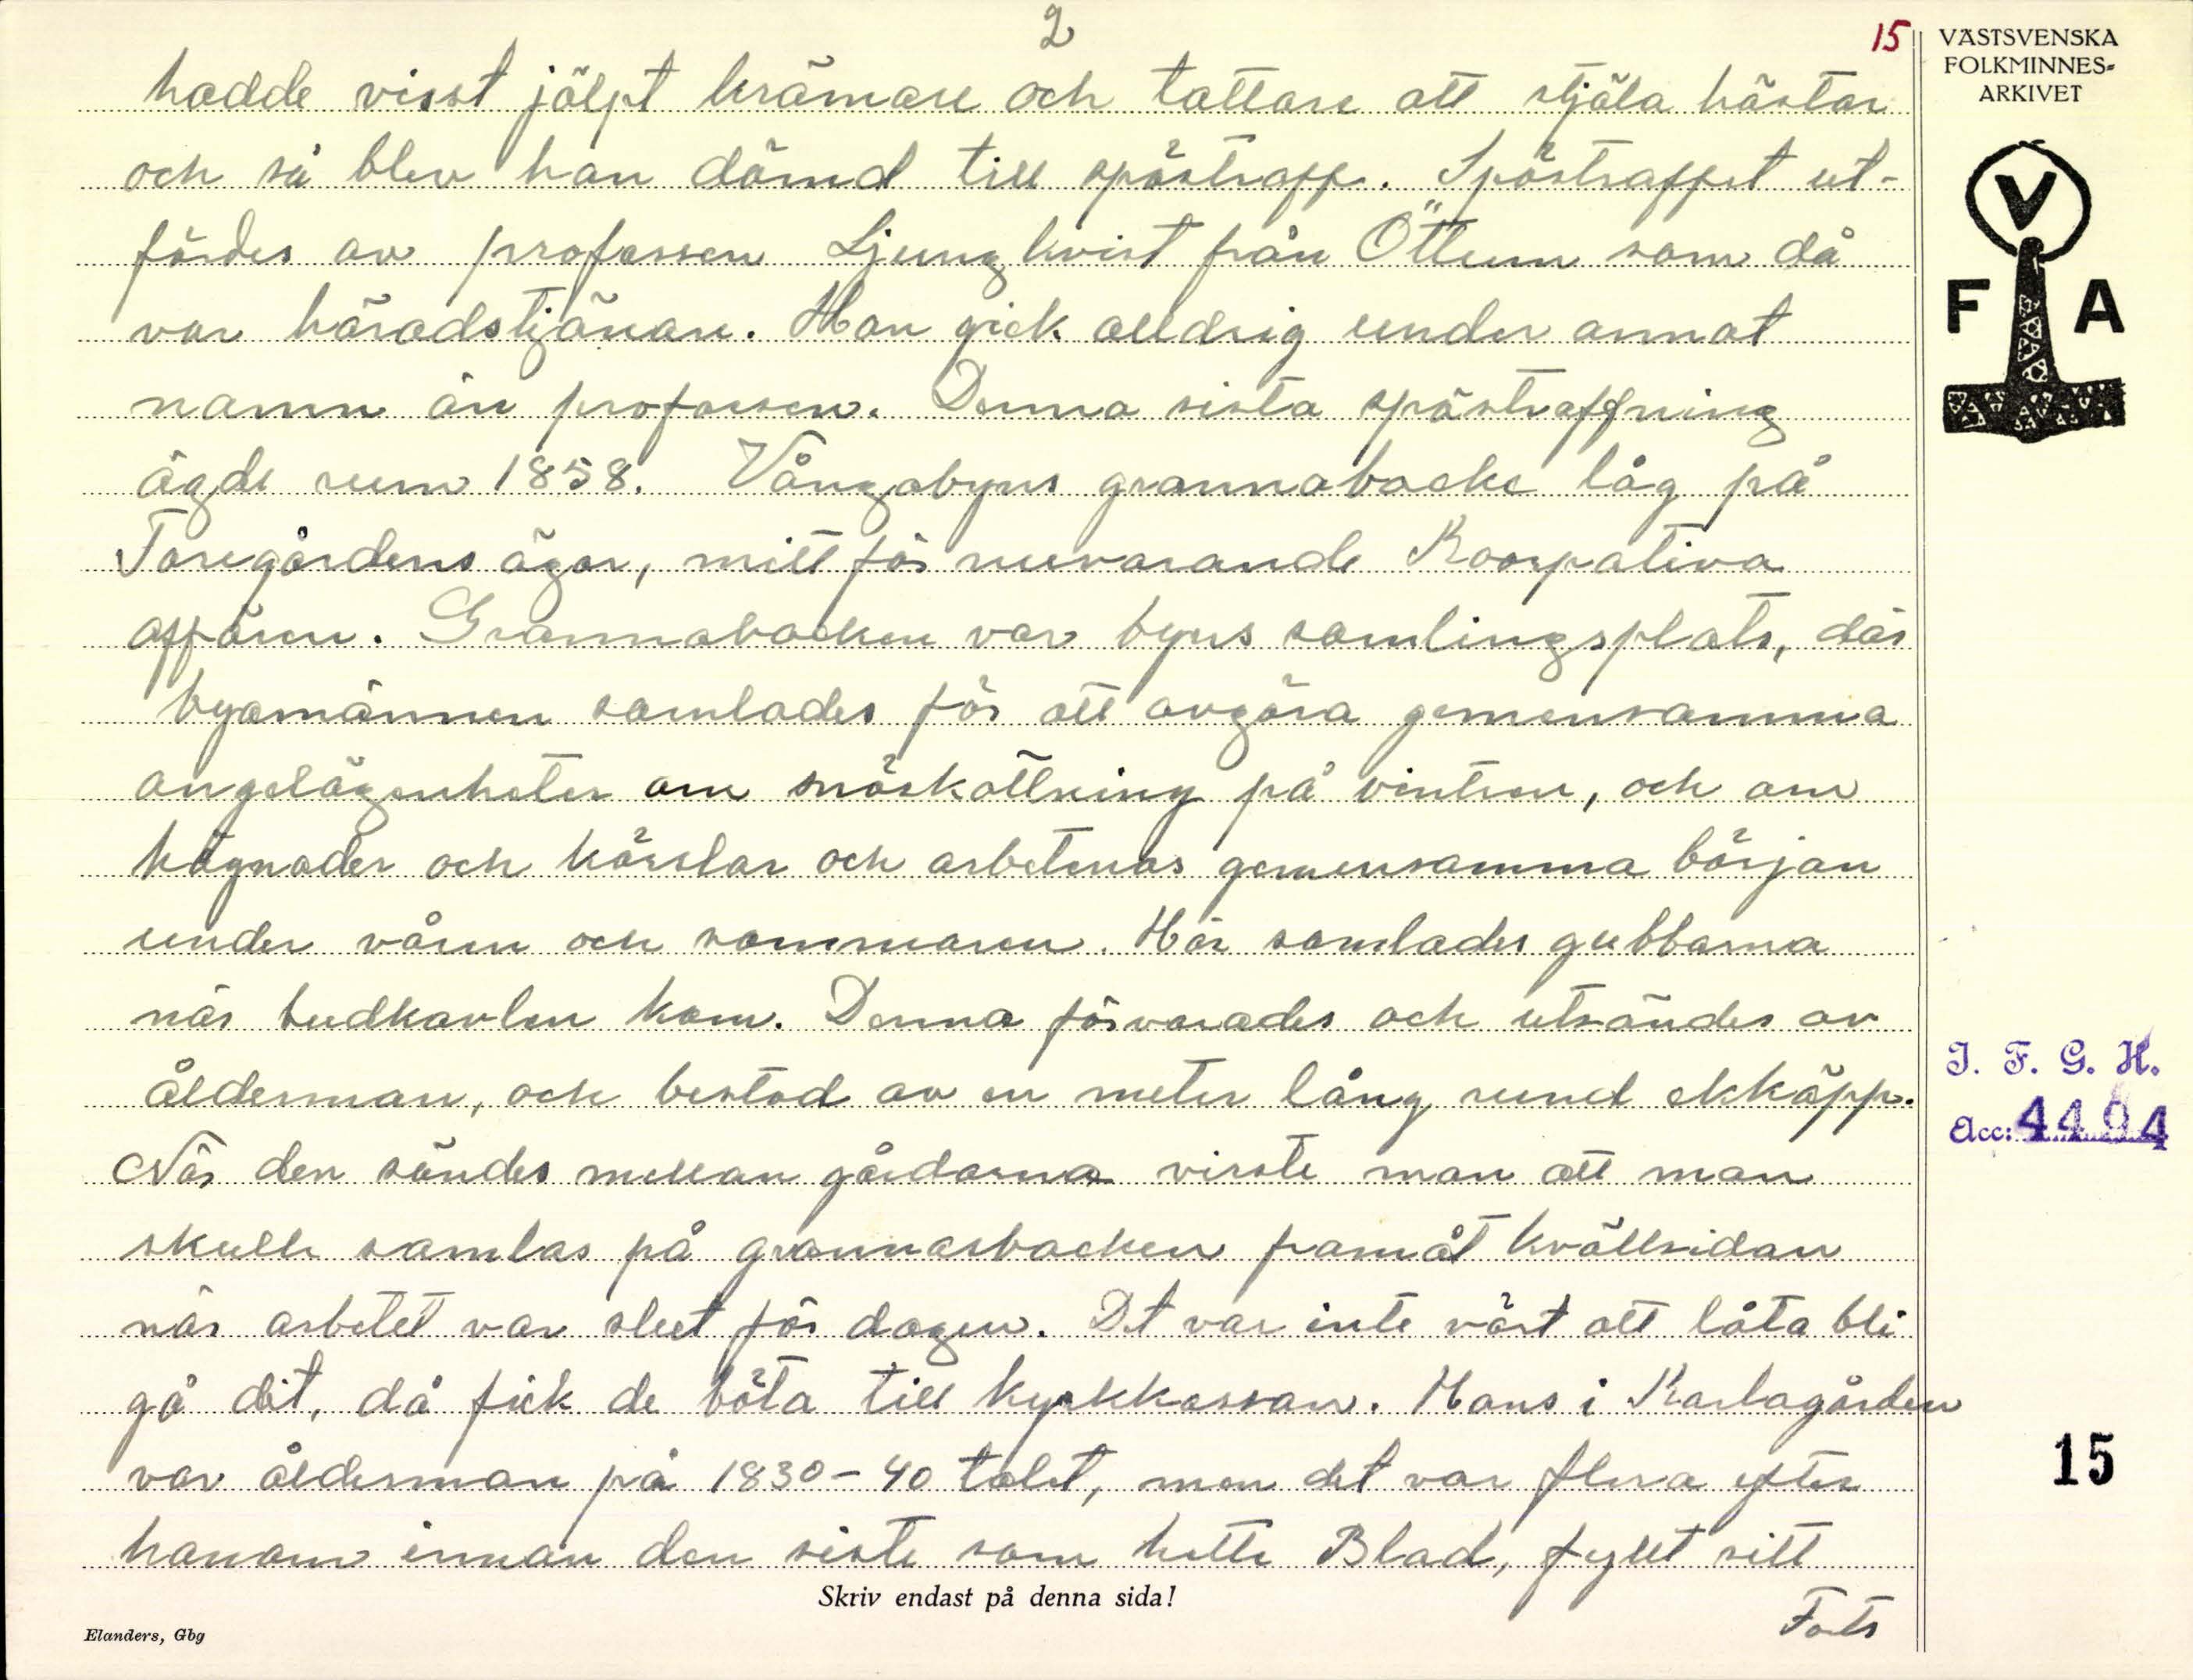 2
15
hadde visst jälpt krämare och tattare att stjäla hästar
och så blev han dömd till spöstraff. Spöstraffet ut-
fördes av profossen Ljungkvist från Öttum som då
var häradstjänare. Han gick alldrig under annat
namn än profossen. Denna sista spöstraffning
ägde rum 1858. Vångabyns grannabacke låg på
Toregårdens ägor, mitt för nuvarande Koorpativa
affären. Grannabacken var byns samlingsplats, där
byamännen samlades för att avgöra gemensamma
angelägenheter om snöskottning på vintren, och om
hägnader och körslar och arbetenas gemensamma början
under våren och sommaren. Här samlades gubbarna
när budkavlen kom. Denna förvarades och utsändes av
ålderman, och bestod av en meter lång rund ekkäpp.
När den sändes mellan gårdarna visste man att man
skulle samlas på grannasbacken framåt kvällsidan
när arbetet var slut för dagen. Det var inte värt att låta bli
gå dit, då fick de böta till kyrkkassan. Hans i Karlagården
var ålderman på 1830-40 talet, men det var flera efter
honom innan den siste som hette Blad, fyllt sitt
Forts
Skriv endast på denna sida!
Elanders, Gbg
VÄSTSVENSKA
FOLKMINNES-
ARKIVET
V
F A
I. F. G. H.
Acc: 4494
15